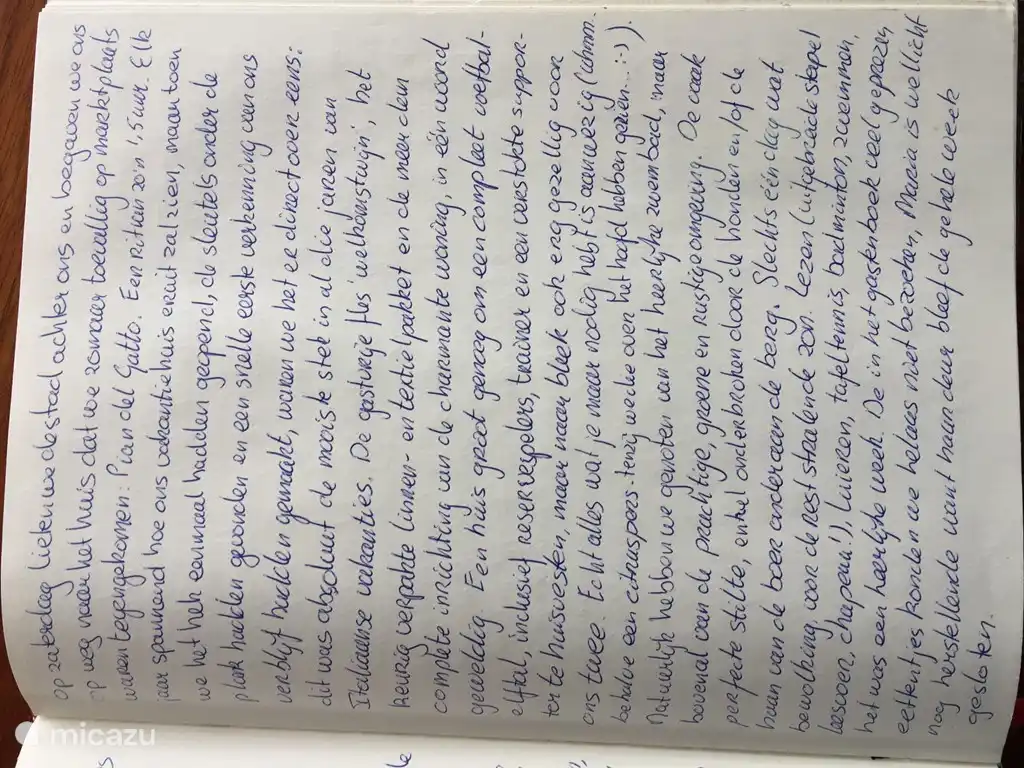 op zaterdag lieten we de stad achter ons en begaven we ons
op weg naar het huis dat we zomaar toevallig op marktplaats
waren tegengekomen: Pian del Gatto. Een rit van zo'n 1,5 uur. Elk
jaar spannend hoe ons vakantiehuis eruit zal zien, maar toen
we het hek eenmaal hadden geopend, de sleutels onder de
plank hadden gevonden en een snelle eerste verkenning van ons
verblijf hadden gemaakt, waren we het er direct over eens:
dit was absoluut de mooiste stek in al die jaren van
Italiaanse vakanties. De gastvrije fles 'welkomstwijn', het
keurig verpakte linnen- en textielpakket en de meer dan
complete inrichting van de charmante woning, in één woord
geweldig. Een huis groot genoeg om een compleet voetbal-
elftal, inclusief reservespelers, trainer en een verstokte suppor-
ter te huisvesten, maar naar bleek ook erg gezellig voor
ons twee. Echt alles wat je maar nodig hebt is aanwezig (ahmm..
behalve een citruspers - tenzij we die over het hoofd hebben gezien... :-)).
Natuurlijk hebben we genoten van het heerlijke zwembad, maar
bovenal van de prachtige, groene en rustige omgeving. De vaak
perfecte stilte, enkel onderbroken door de honden en/of de
haan van de boer onderaan de berg. Slechts één dag wat
bewolking, voor de rest stralende zon. Lezen (uitgebreide stapel
leesvoer, chapeau!), luieren, tafeltennis, badminton, zwemmen,
het was een heerlijke week. De in het gastenboek veel geprezen
eettentjes konden we helaas niet bezoeken, Maria is wellicht
nog herstellende want haar deur bleef de gehele week
gesloten.
micazu